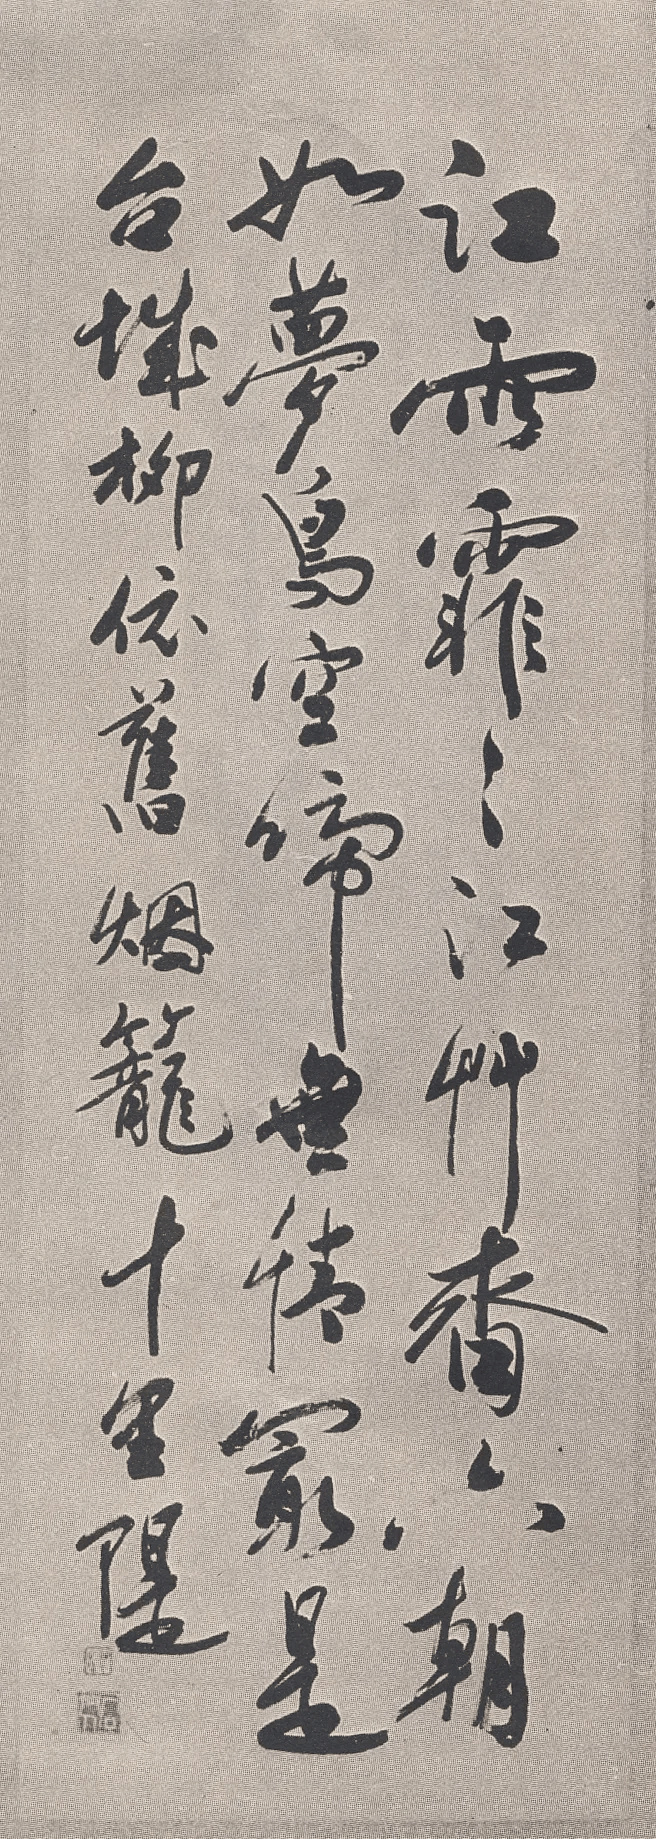 江雨霏〻江艸香六朝
如夢鳥空啼無情冣是
台城柳依舊烟籠十里隄